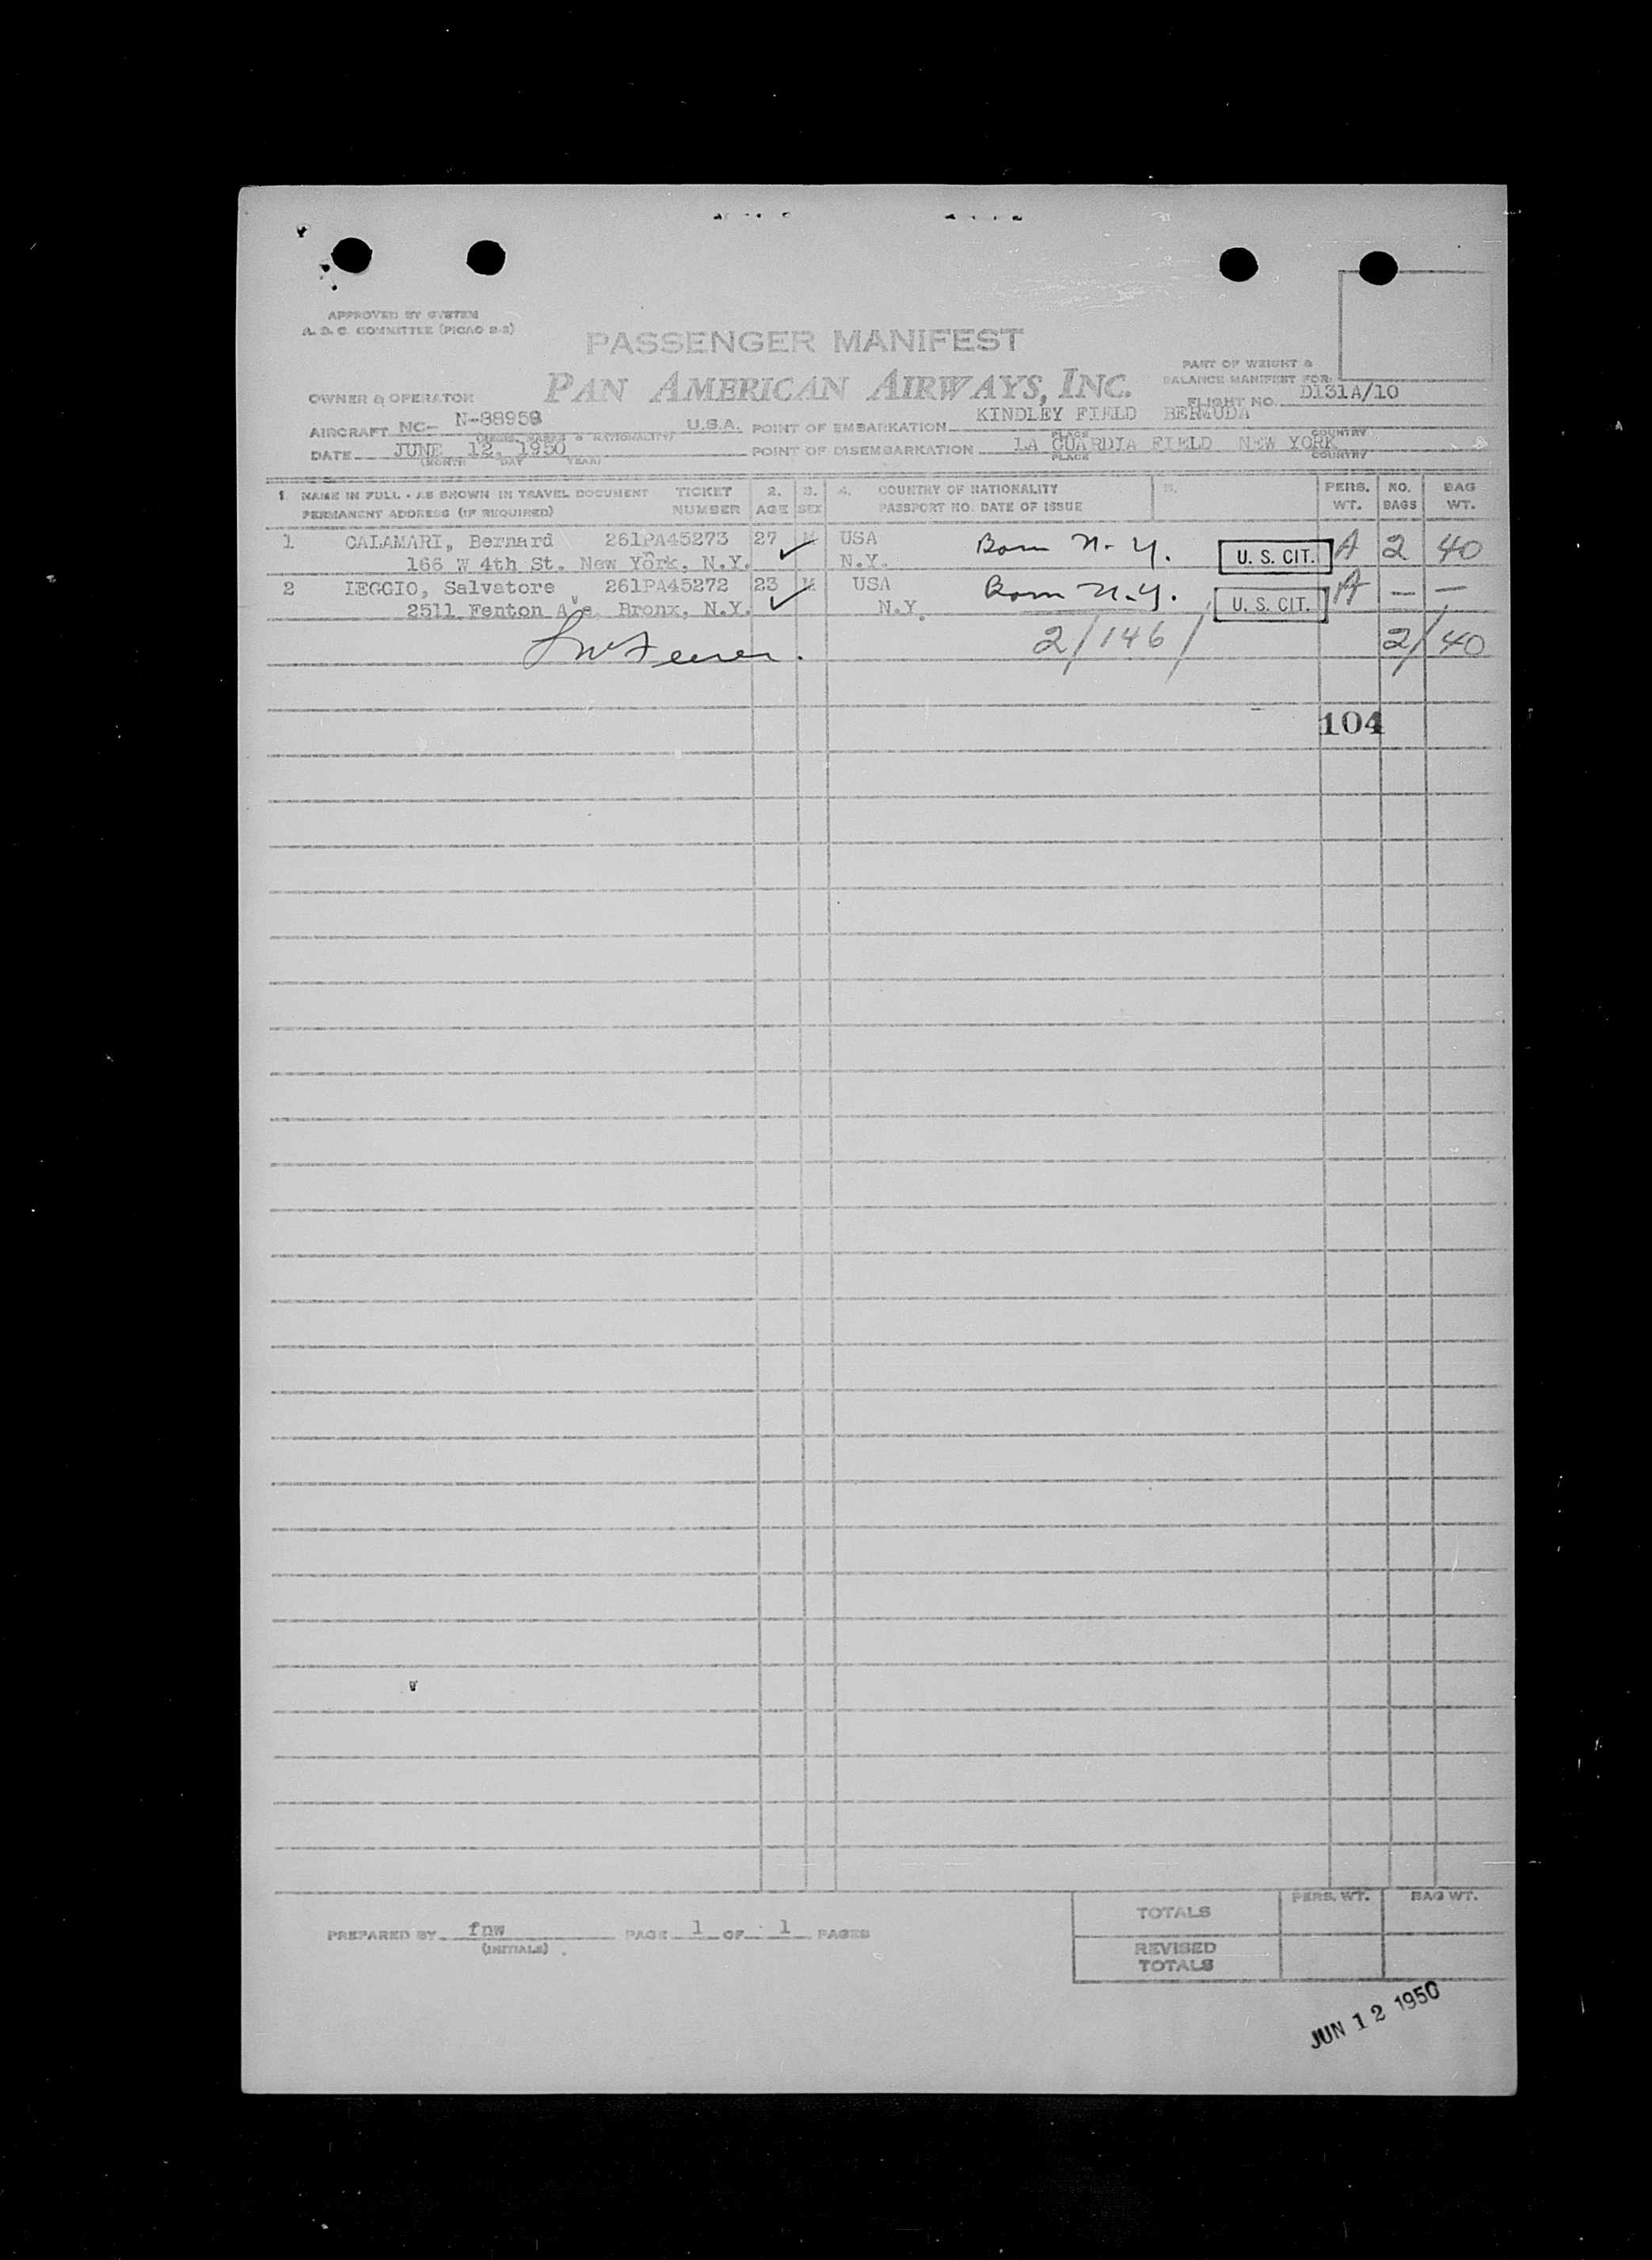 APPROVED BY SYSTEM
A. D. C. COMMITTEE (PICAO S-3)
PASSENGER MANIFEST
PAN AMERICAN AIRWAYS, INC.
PART OF WEIGHT &
BALANCE MANIFEST FOR:
FLIGHT NO. D131A/10
OWNER & OPERATOR
AIRCRAFT NC- N-88958 U.S.A. POINT OF EMBARKATION KINDLEY FIELD BERMUDA
PLACE COUNTRY
DATE JUNE 12, 1950 POINT OF DISEMBARKATION LA GUARDIA FIELD NEW YORK
(MONTH DAY YEAR) PLACE COUNTRY
1. NAME IN FULL - AS SHOWN IN TRAVEL DOCUMENT TICKET 2. 3. 4. COUNTRY OF NATIONALITY 5. PERS. NO. BAG
PERMANENT ADDRESS (IF REQUIRED) NUMBER AGE SEX PASSPORT NO. DATE OF ISSUE WT. BAGS WT.
1 CALAMARI, Bernard 261PA45273 27 M USA Born N.Y. U. S. CIT. A 2 40
166 W 4th St. New York, N.Y. N.Y.
2 LEGGIO, Salvatore 261PA45272 23 M USA Born N.Y. U. S. CIT. A — —
2511 Fenton Ave, Bronx, N.Y. N.Y.
2/146/ 2/40
104
PREPARED BY fnw PAGE 1 OF 1 PAGES
(INITIALS)
PERS. WT. BAG WT.
TOTALS
REVISED
TOTALS
JUN 12 1950